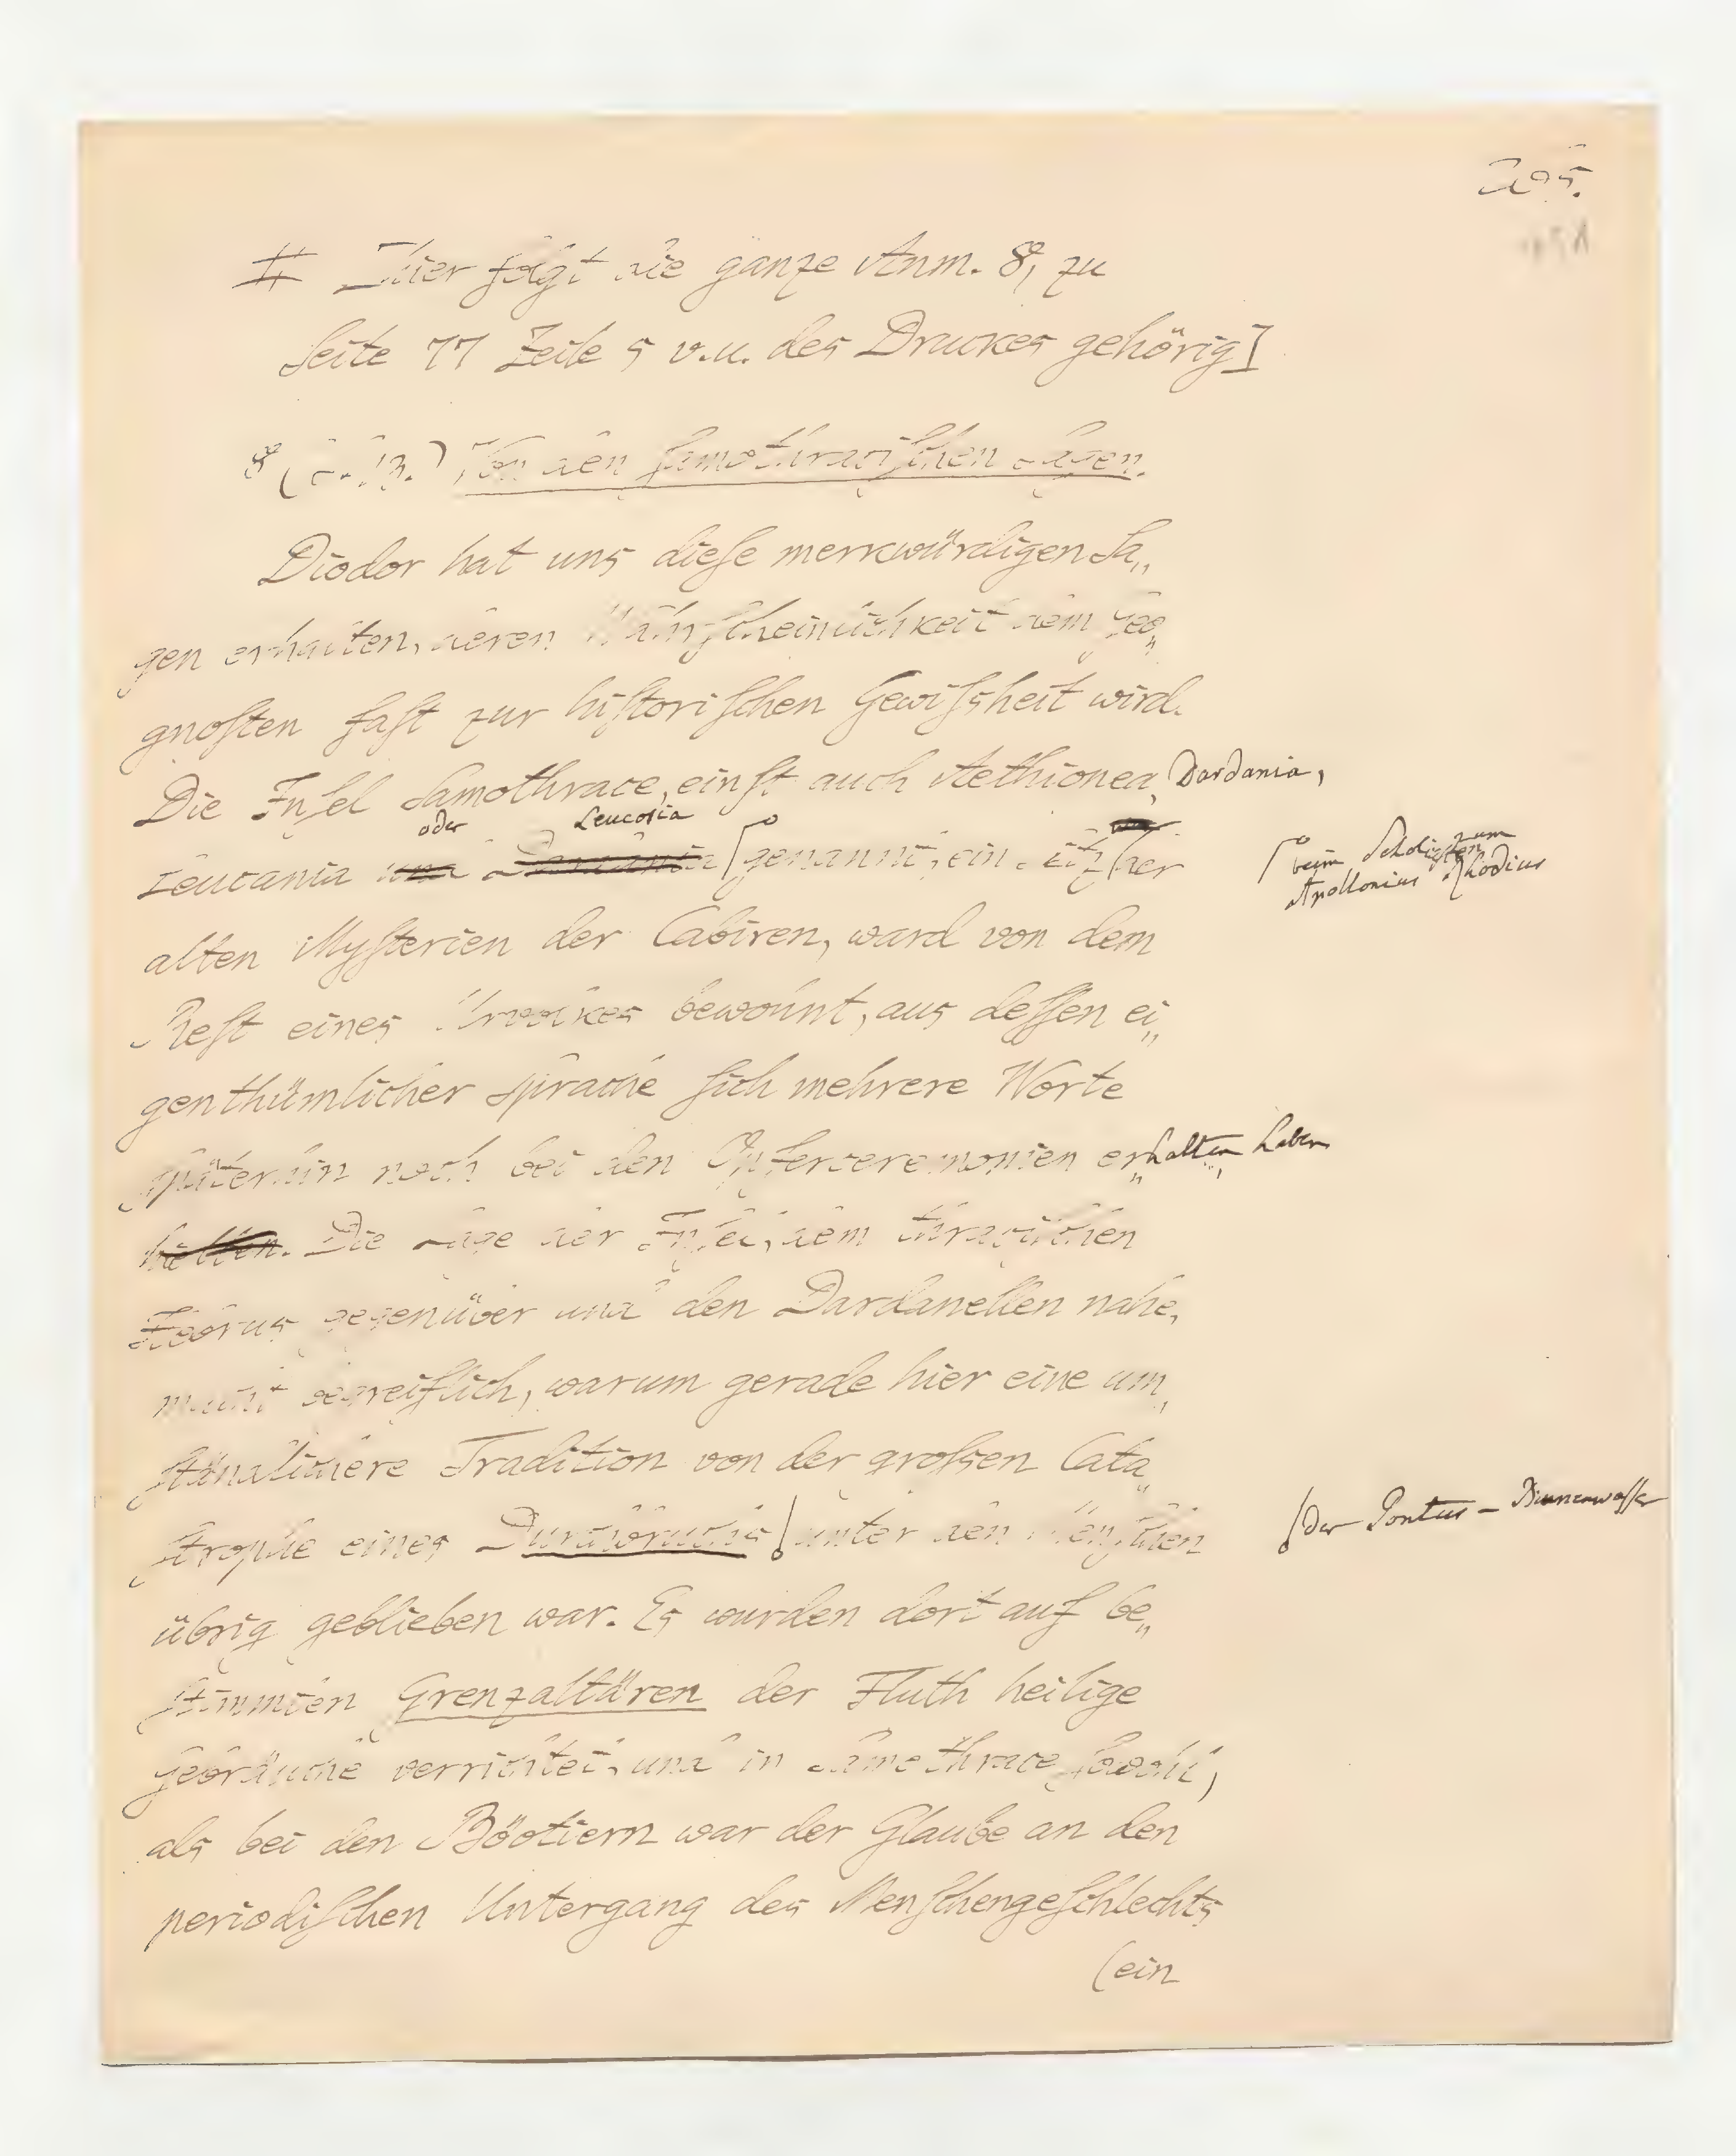 205.
# Hier folgt die ganze Anm. 8, zu
Seite 77 Zeile 5 v.u. des Druckes gehörig]
8 (S. 13.) Von den samothracischen Sagen.
Diodor hat uns diese merkwürdigen Sa„
gen erhalten, deren Wahrscheinlichkeit dem Geo„
gnosten fast zur historischen Gewissheit wird.
Die Insel Samothrace, einst auch Aethionea, Dardania,
oder Leucosia
Leucania und Dardania genannt, ein Sitz der
beim Scholiasten zum
Apollonius Rhodius
alten Mysterien der Cabiren, ward von dem
Rest eines Urvolkes bewohnt, aus dessen ei„
genthümlicher Sprache sich mehrere Worte
späterhin noch bei den Opferceremonien er„halten haben
hielten. Die Lage der Insel, dem thracischen
Hebrus gegenüber und den Dardanellen nahe,
macht begreiflich, warum gerade hier eine um„
ständlichere Tradition von der großen Cata„
strophe eines Durchbruchs unter den Menschen
der Pontus-Binnenwasser
übrig geblieben war. Es wurden dort auf be„
stimmten Grenzaltären der Fluth heilige
Gebräuche verrichtet, und in Samothrace sowohl,
als bei den Böotiern war der Glaube an den
periodischen Untergang des Menschengeschlechts
(ein